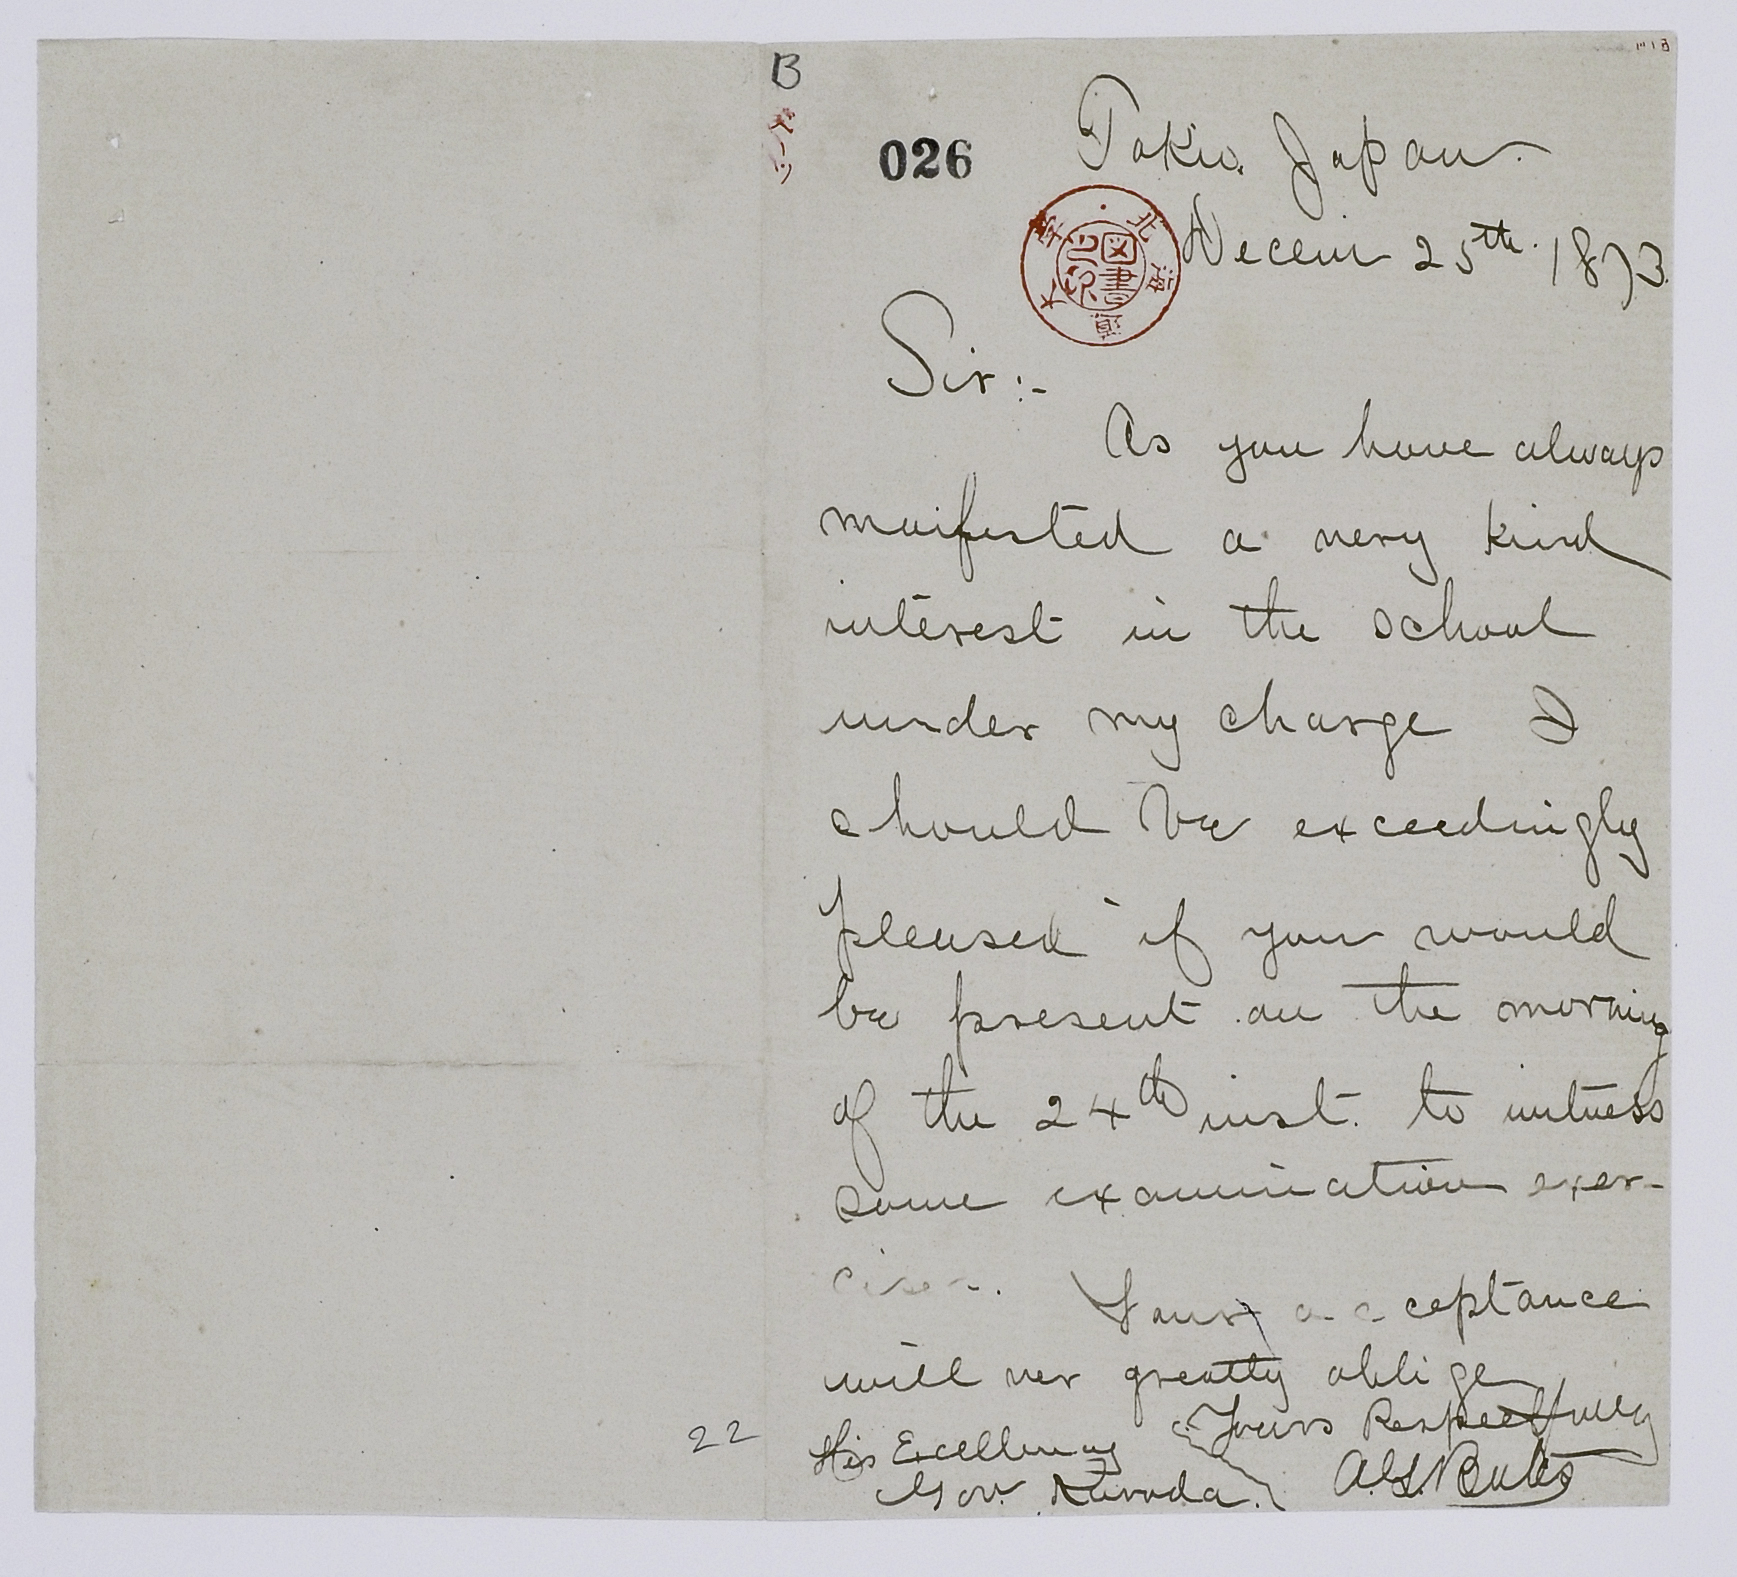 B
ベーツ
026
Tokio. Japan.
北海道大学
図書之印
Decem 25th. 1873.
Sir:-
As you have always
manifested a very kind
interest in the school
under my charge I
should be exceedingly
pleased if you would
be present on the morning
of the 24th inst. to witness
some examination exer-
cises. Your acceptance
will very greatly oblige
Yours Respectfully
His Excellency
Gov. Kuroda.
Bates
22